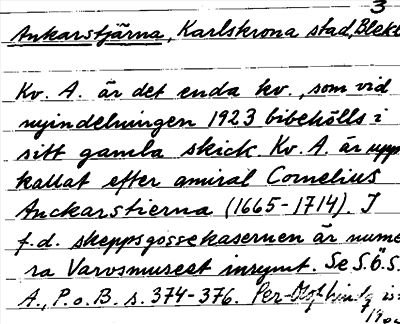 3
Ankarstjärna, Karlskrona stad, Blek
Kv. A. är det enda kv., som vid
nyindelningen 1923 bibehölls i
sitt gamla skick. Kv. A. är upp
kallat efter amiral Cornelius
Anckarstierna (1665-1714). I
f.d. skeppsgossekasernen är nume
ra Varvsmuseet inrymt. Se S.Ö.S.
A., P. o. B. s. 374-376. Per-Olof